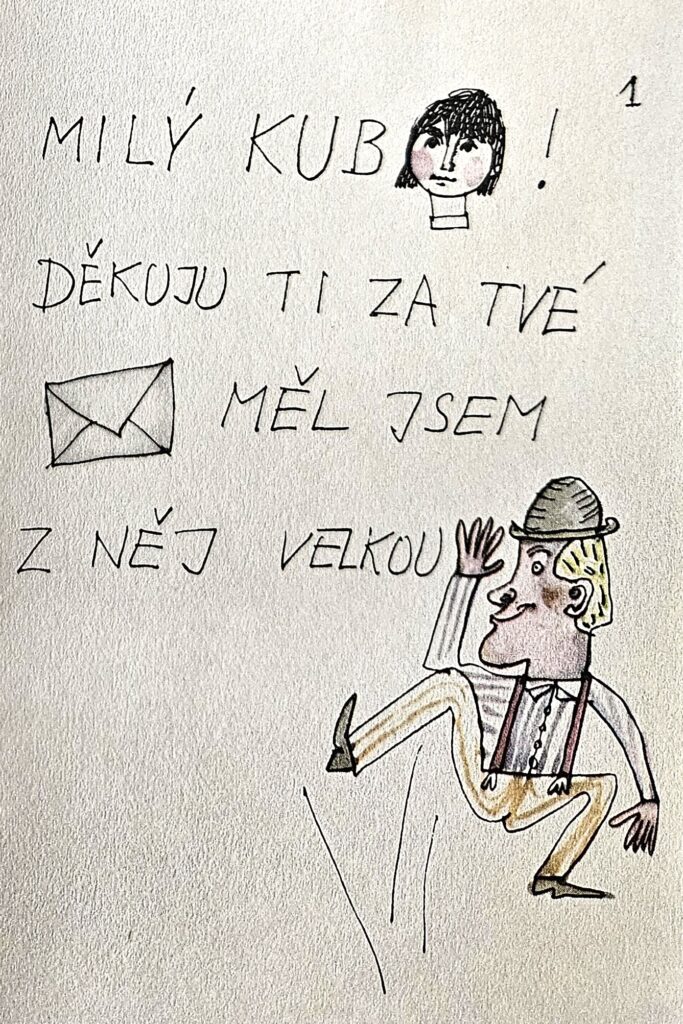 1
MILÝ KUB !
DĚKUJU TI ZA TVÉ
MĚL JSEM
Z NĚJ VELKOU